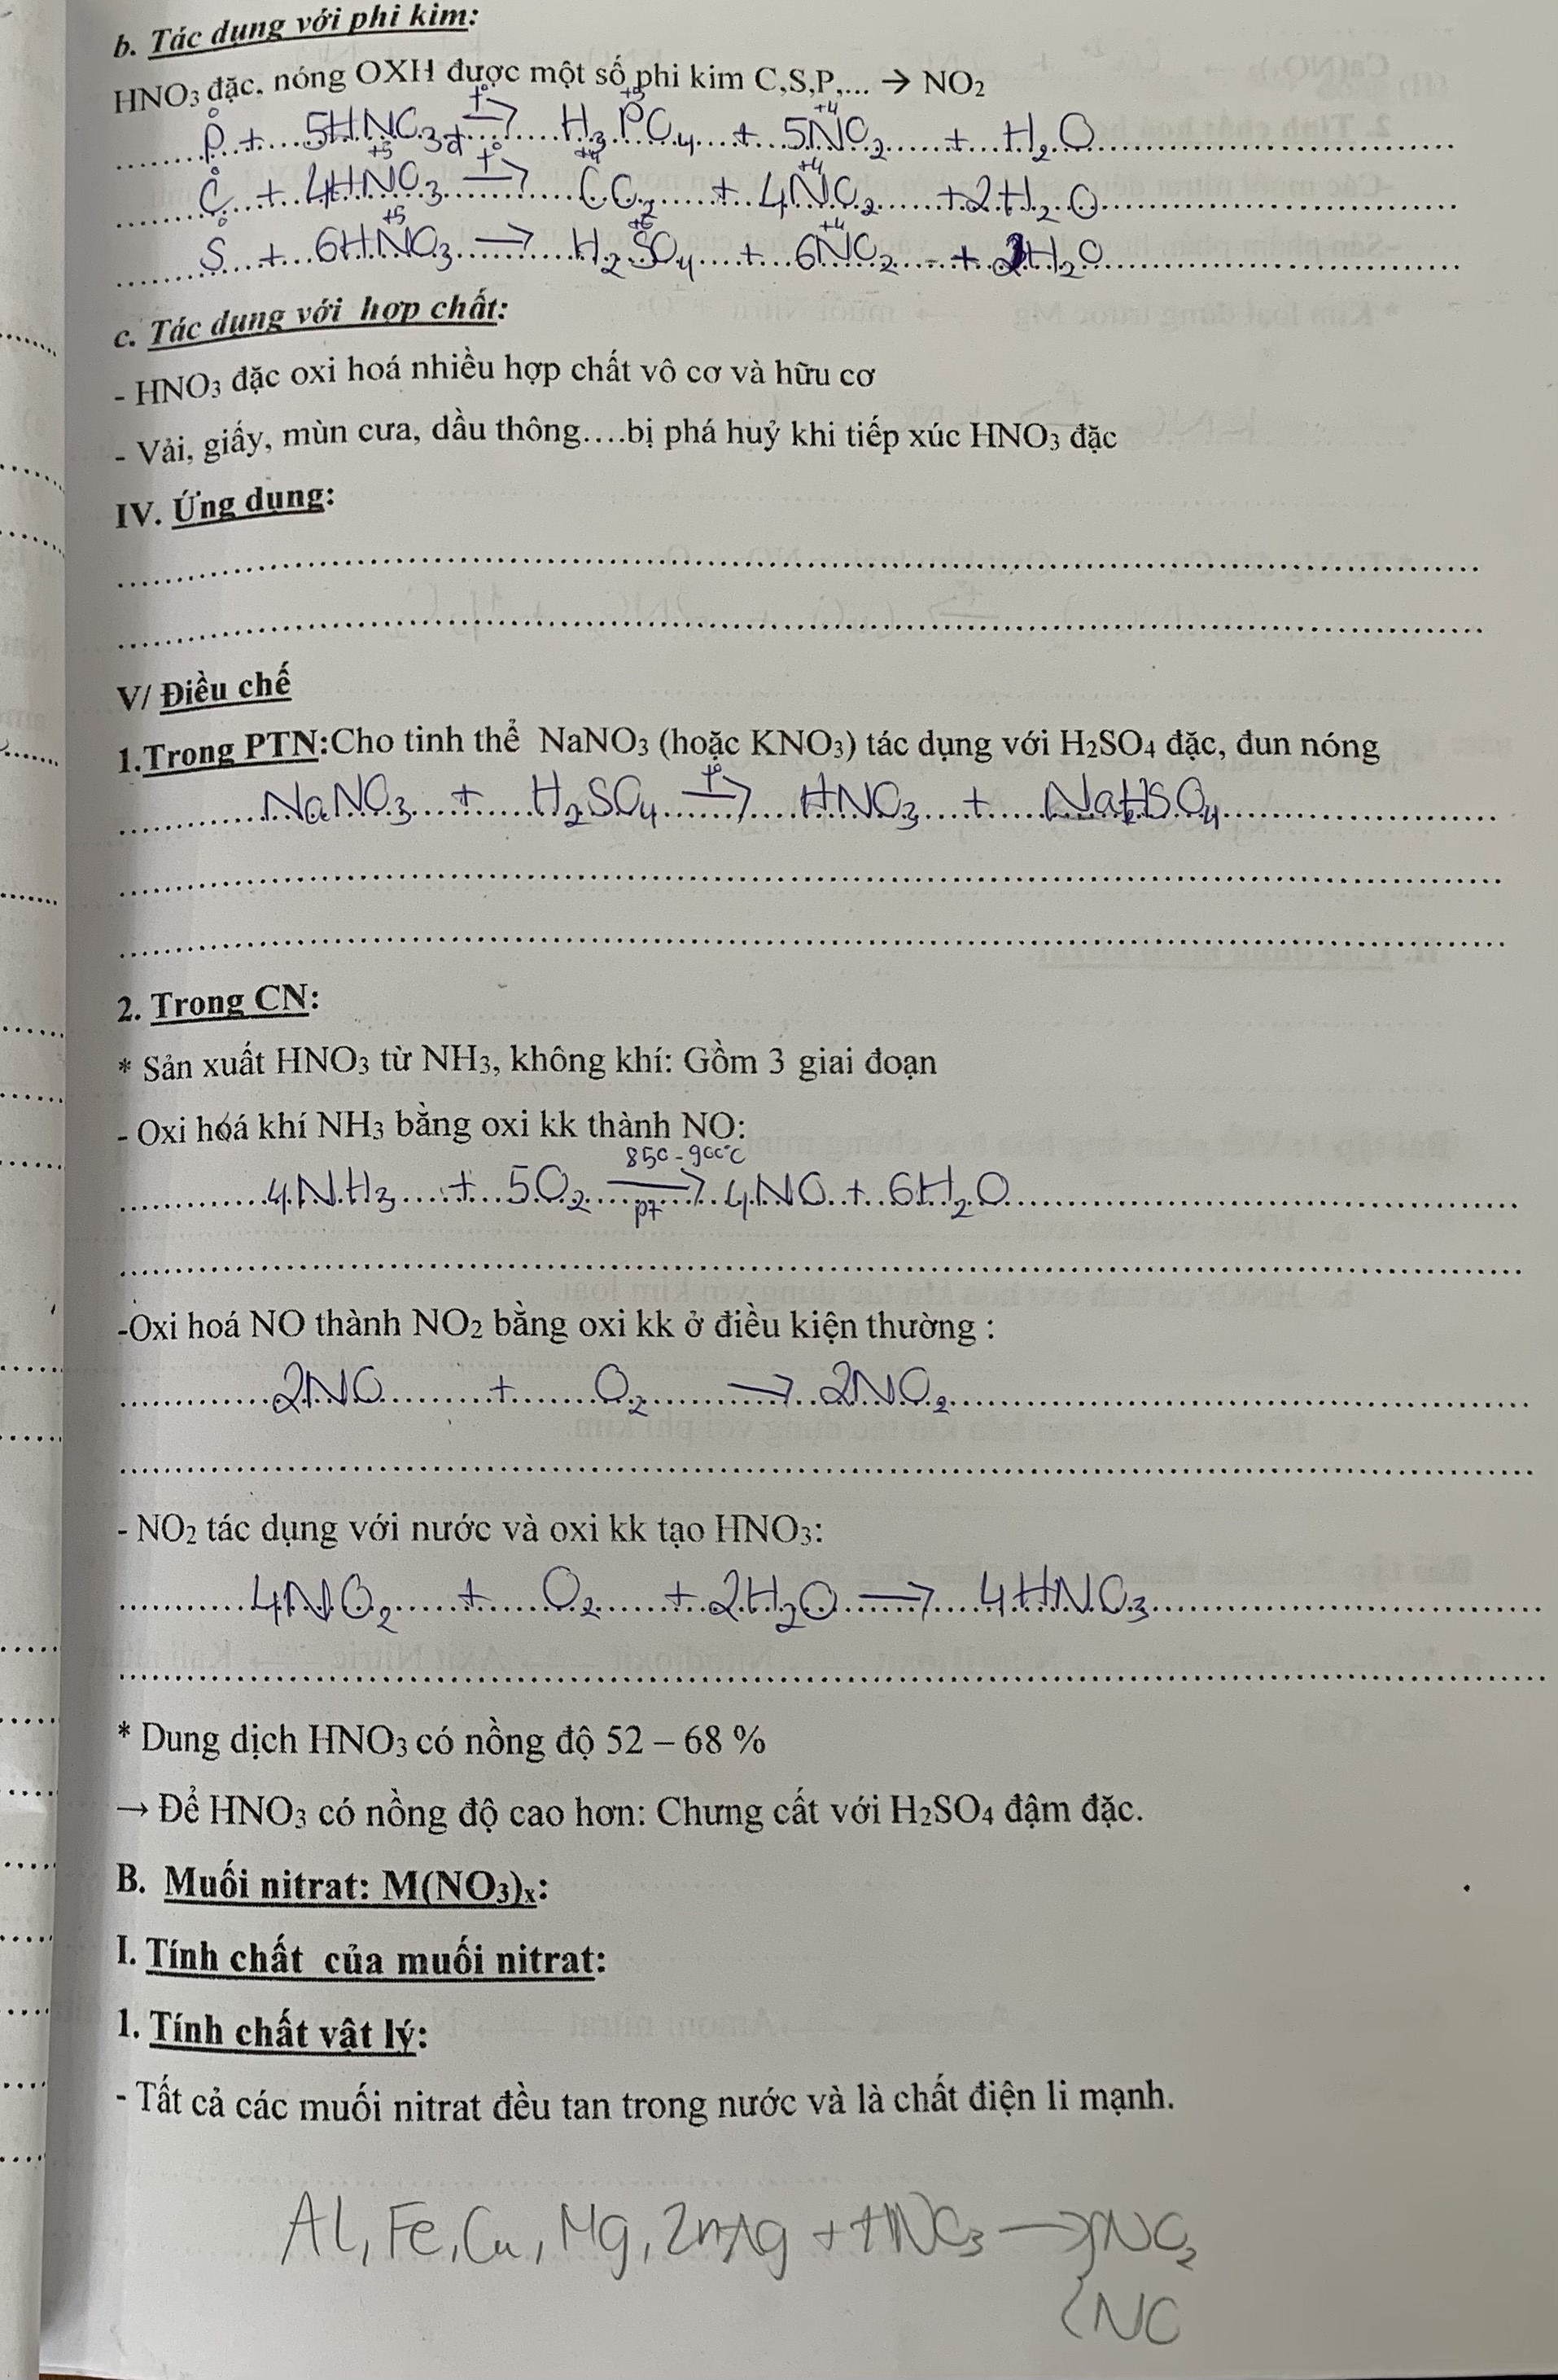 b. Tác dụng với phi kim:
HNO₃ đặc, nóng OXH được một số phi kim C,S,P,... → NO₂
P⁰ + 5HNO₃đ —t°→ H₃P⁺⁵O₄ + 5N⁺⁴O₂ + H₂O
C⁰ + 4HN⁺⁵O₃ —t°→ C⁺⁴O₂ + 4N⁺⁴O₂ + 2H₂O
S⁰ + 6HN⁺⁵O₃ → H₂S⁺⁶O₄ + 6N⁺⁴O₂ + 2H₂O
c. Tác dụng với hợp chất:
- HNO₃ đặc oxi hoá nhiều hợp chất vô cơ và hữu cơ
- Vải, giấy, mùn cưa, dầu thông....bị phá huỷ khi tiếp xúc HNO₃ đặc
IV. Ứng dụng:
V/ Điều chế
1.Trong PTN:Cho tinh thể NaNO₃ (hoặc KNO₃) tác dụng với H₂SO₄ đặc, đun nóng
NaNO₃ + H₂SO₄ —t°→ HNO₃ + NaHSO₄
2. Trong CN:
* Sản xuất HNO₃ từ NH₃, không khí: Gồm 3 giai đoạn
- Oxi hoá khí NH₃ bằng oxi kk thành NO:
4NH₃ + 5O₂ —850-900°C, pt→ 4NO + 6H₂O
-Oxi hoá NO thành NO₂ bằng oxi kk ở điều kiện thường :
2NO + O₂ → 2NO₂
- NO₂ tác dụng với nước và oxi kk tạo HNO₃:
4NO₂ + O₂ + 2H₂O → 4HNO₃
* Dung dịch HNO₃ có nồng độ 52 – 68 %
→ Để HNO₃ có nồng độ cao hơn: Chưng cất với H₂SO₄ đậm đặc.
B. Muối nitrat: M(NO₃)ₓ:
I. Tính chất của muối nitrat:
1. Tính chất vật lý:
- Tất cả các muối nitrat đều tan trong nước và là chất điện li mạnh.
Al, Fe, Cu, Mg, Zn, Ag + HNO₃ → { NO₂
NO